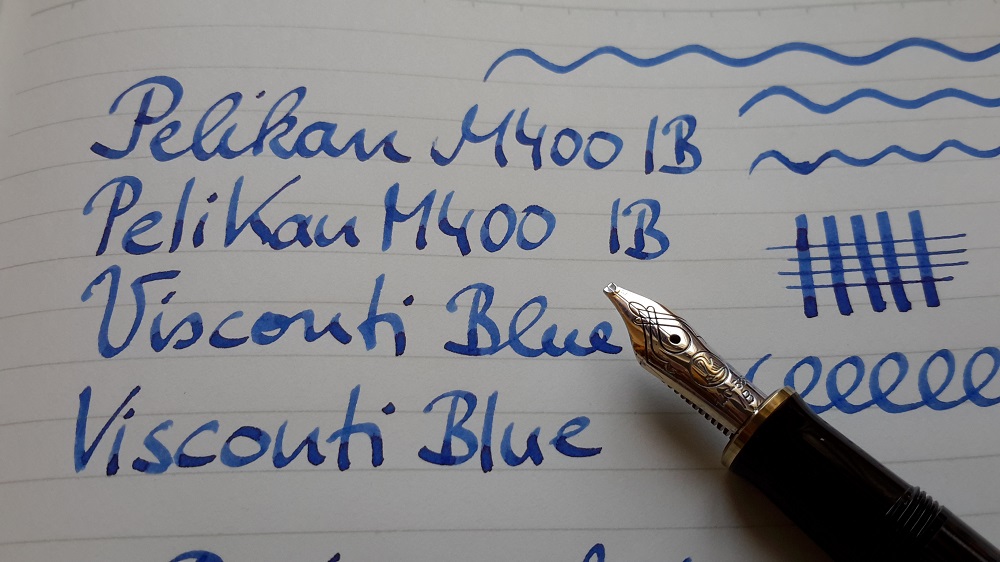 Pelikan M400 IB
Pelikan M400 IB
Visconti Blue
Visconti Blue